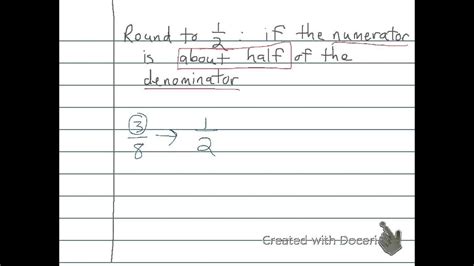 Round to 1/2 : if the numerator
is about half of the
denominator
3/8 → 1/2
Created with Doceri